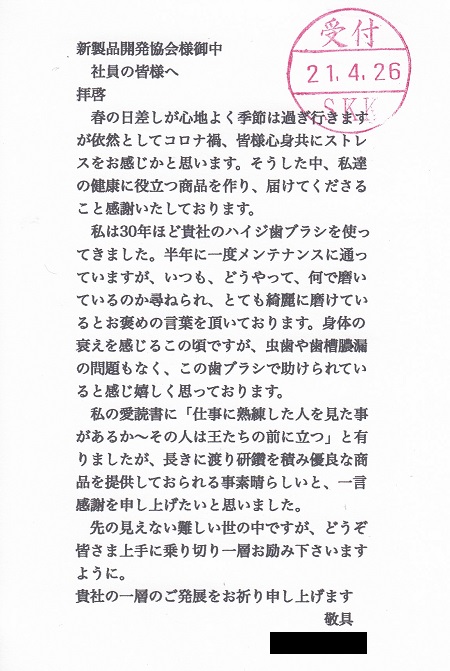 受付
21.4.26
SKK
新製品開発協会様御中
社員の皆様へ
拝啓
春の日差しが心地よく季節は過ぎ行きます
が依然としてコロナ禍、皆様心身共にストレ
スをお感じかと思います。そうした中、私達
の健康に役立つ商品を作り、届けてくださる
こと感謝いたしております。
私は30年ほど貴社のハイジ歯ブラシを使っ
てきました。半年に一度メンテナンスに通っ
ていますが、いつも、どうやって、何で磨い
ているのか尋ねられ、とても綺麗に磨けてい
るとお褒めの言葉を頂いております。身体の
衰えを感じるこの頃ですが、虫歯や歯槽膿漏
の問題もなく、この歯ブラシで助けられてい
ると感じ嬉しく思っております。
私の愛読書に「仕事に熟練した人を見た事
があるか〜その人は王たちの前に立つ」と有
りましたが、長きに渡り研鑽を積み優良な商
品を提供しておられる事素晴らしいと、一言
感謝を申し上げたいと思いました。
先の見えない難しい世の中ですが、どうぞ
皆さま上手に乗り切り一層お励み下さいます
ように。
貴社の一層のご発展をお祈り申し上げます
敬具